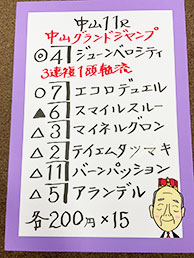 中山11R
中山グランドジャンプ
◎4 ジューンベロシティ
3連複1頭軸流
○7 エコロデュエル
▲6 スマイルスルー
△3 マイネルグロン
△2 テイエムタツマキ
△11 バーンパッション
△5 アランデル
各200円×15